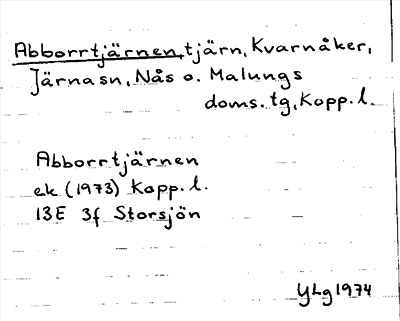 Abborrtjärnen, tjärn, Kvarnåker,
Järnasn, Nås o. Malungs
doms. tg, Kopp. l.
Abborrtjärnen
ek (1973) Kopp. l.
13E 3f Storsjön
YLg 1974